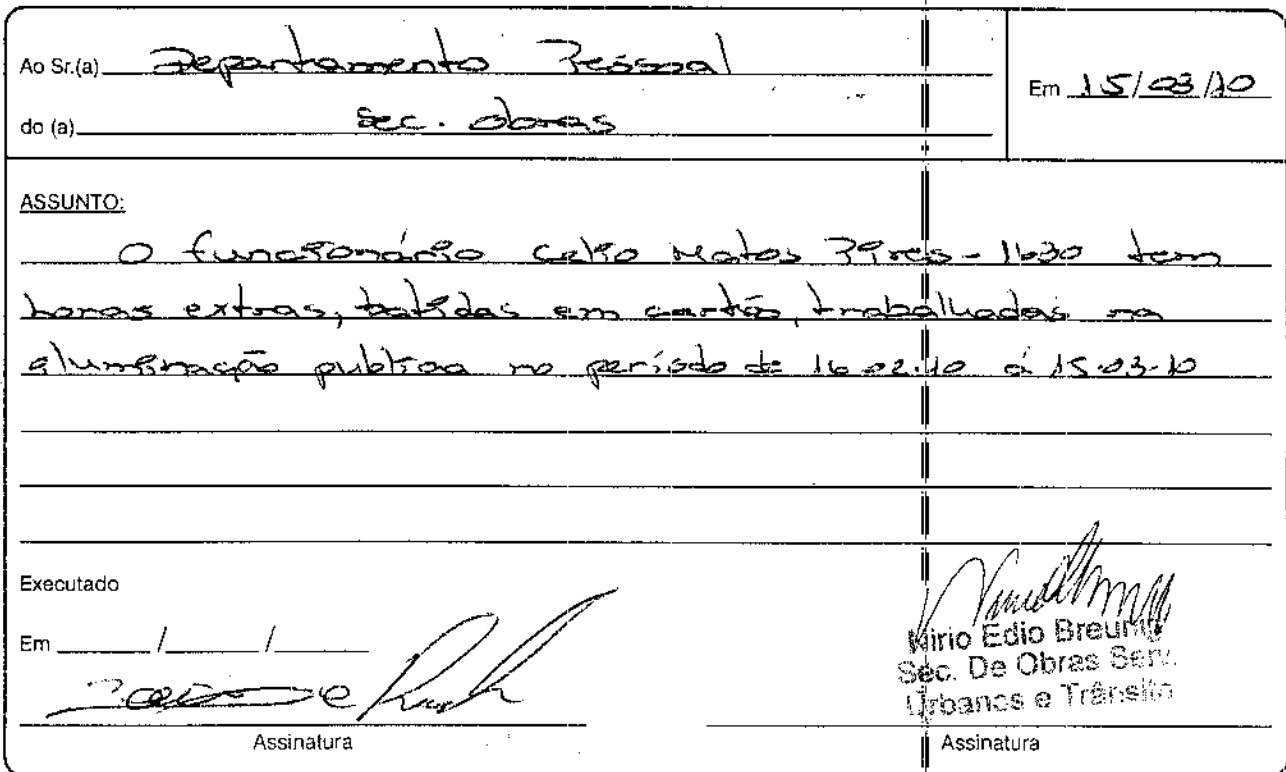 Ao Sr.(a) Departamento Pessoal
Em 15/03/10
do (a) Sec. obras
ASSUNTO:
O funcionário Celso Matos Pires - 1630 tem
horas extras, batidas em cartão, trabalhadas na
iluminação publica no período de 16.02.10 á 15.03.10
Executado
Em / /
Assinatura
Nirio Edio Breunig
Sec. De Obras Serv.
Urbanos e Trânsito
Assinatura